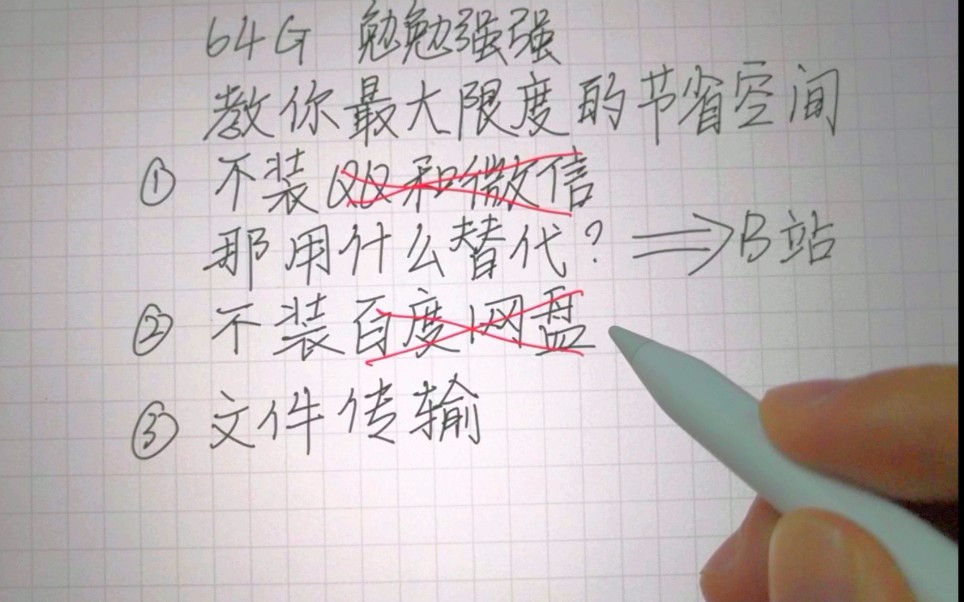 64G 勉勉强强
教你最大限度的节省空间
① 不装QQ和微信
那用什么替代? ⟹B站
② 不装百度网盘
③ 文件传输